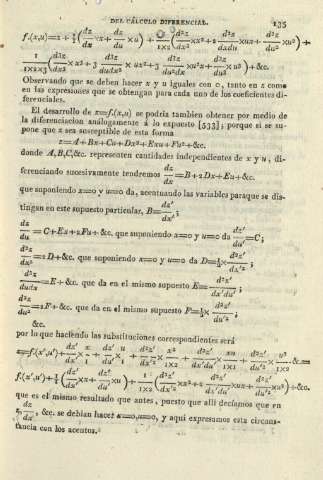 DEL CÁLCULO DIFERENCIAL. 135
f.(x,u)=z+½(dz/dx ×x+dz/du ×u)+1/1×2(d²z/dx² ×x²+2 d²z/dxdu xu+d²z/du² ×u²)+
1/1×2×3(d³z/dx³ x³+3 d³z/dudx² ux²+3 d³z/du²dx u²x+d³z/du³ u³)+&c.
Observando que se deben hacer x y u iguales con 0, tanto en z como
en las expresiones que se obtengan para cada uno de los coeficientes di-
ferenciales.
El desarrollo de z=f.(x,u) se podria tambien obtener por medio de
la diferenciacion análogamente á lo expuesto [533]; porque si se su-
pone que z sea susceptible de esta forma
z=A+Bx+Cu+Dx²+Exu+Fu²+&c.
donde A,B,C,&c. representen cantidades independientes de x y u, di-
ferenciando sucesivamente tendremos dz/dx=B+2Dx+Eu+&c.
que suponiendo x=0 y u=0 da, acentuando las variables para que se dis-
tingan en este supuesto particular, B=dz'/dx';
dz/du=C+Ex+2Fu+&c. que suponiendo x=0 y u=0 da dz'/du'=C;
d²z/dx²=2D+&c. que suponiendo x=0 y u=0 da D=½×d²z'/dx'²;
d²z/dudx=E+&c. que da en el mismo supuesto E=d²z'/dx'du';
d²z/du²=2F+&c. que da en el mismo supuesto F=½×d²z'/du'²;
&c.
por lo que haciendo las substituciones correspondientes será
z=f.(x',u')+dz'/dx' x/1+dz'/du' u/1+d²z'/dx'² × x²/1×2+d²z'/dx'du' × xu/1×1+d²z'/du'² × u²/1×2+&c.=
f.(x',u')+½(dz'/dx' ×x+dz'/du' ×u)+1/1×2(d²z'/dx'² ×x²+2 d²z'/dx'du' ×ux+d²z'/du'² ×u²)+&c.
que es el mismo resultado que antes, puesto que allí decíamos que en
z, dz/dx, &c. se debian hacer x=0, u=0, y aquí expresamos esta circuns-
tancia con los acentos.